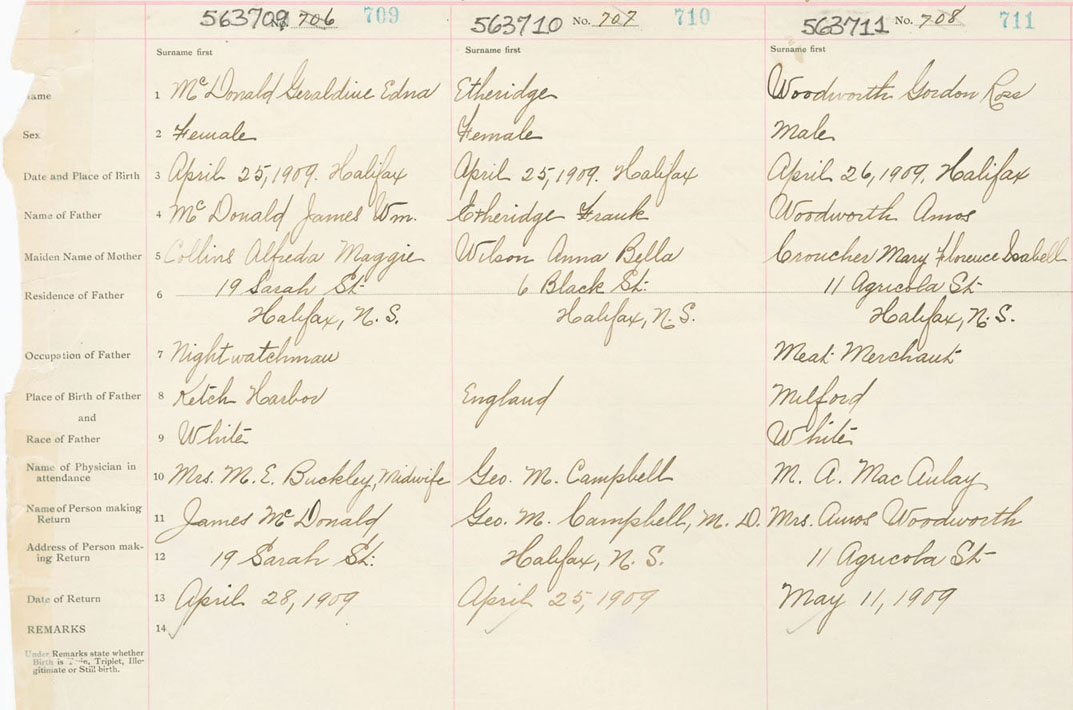 563709 No. 706 709 563710 No. 707 710 563711 No. 708 711
Surname first Surname first Surname first
Name 1 McDonald Geraldine Edna Etheridge Woodworth Gordon Ross
Sex 2 Female Female Male
Date and Place of Birth 3 April 25, 1909. Halifax April 25, 1909. Halifax April 26, 1909. Halifax
Name of Father 4 McDonald James Wm. Etheridge Frank Woodworth Amos
Maiden Name of Mother 5 Collins Alfreda Maggie Wilson Anna Bella Croucher Mary Florence Isabell
Residence of Father 6 19 Sarah St. 6 Black St. 11 Agricola St
Halifax, N.S. Halifax, N.S. Halifax, N.S.
Occupation of Father 7 Nightwatchman Meat Merchant
Place of Birth of Father 8 Ketch Harbor England Milford
and
Race of Father 9 White White
Name of Physician in
attendance 10 Mrs. M. E. Buckley, Midwife Geo. M. Campbell M. A. MacAulay
Name of Person making
Return 11 James McDonald Geo. M. Campbell, M. D. Mrs. Amos Woodworth
Address of Person mak-
ing Return 12 19 Sarah St. Halifax, N.S. 11 Agricola St
Date of Return 13 April 28, 1909 April 25, 1909 May 11, 1909
REMARKS 14
Under Remarks state whether
Birth is Twin, Triplet, Ille-
gitimate or Still birth.